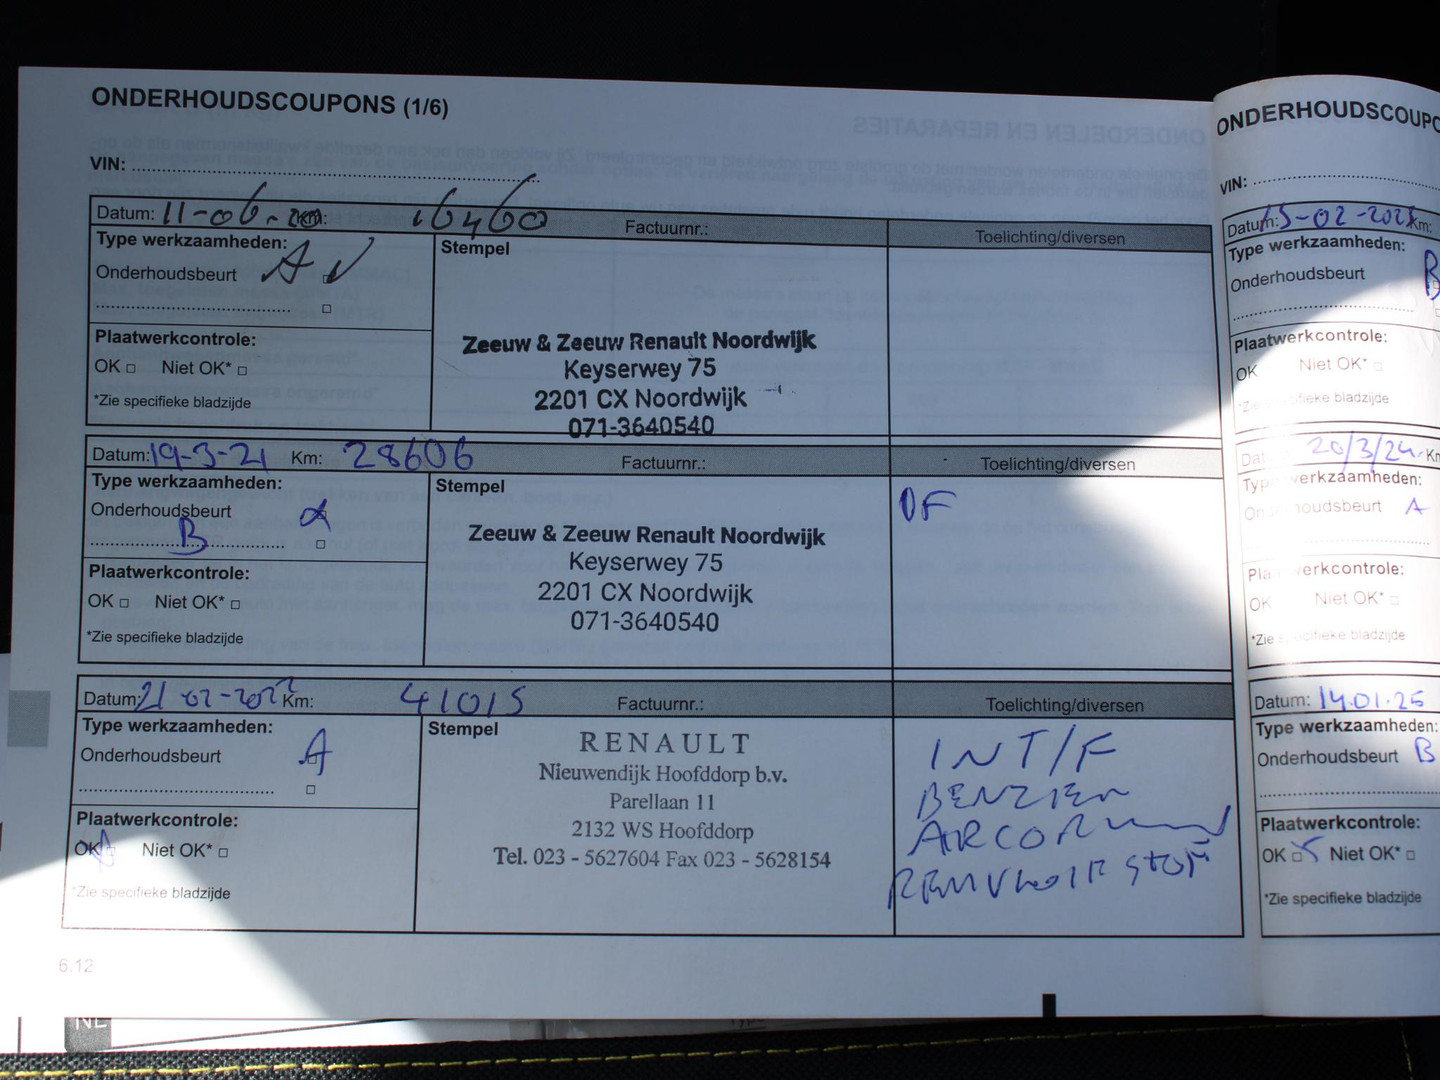 ONDERHOUDSCOUPONS (1/6)
VIN:
Datum: 11-06-20 Km: 16460 Factuurnr.: Toelichting/diversen
Type werkzaamheden:
Stempel
Onderhoudsbeurt A
Zeeuw & Zeeuw Renault Noordwijk
Keyserwey 75
2201 CX Noordwijk
071-3640540
Plaatwerkcontrole:
OK □ Niet OK* □
*Zie specifieke bladzijde
Datum: 19-3-21 Km: 28606 Factuurnr.: Toelichting/diversen
Type werkzaamheden:
Stempel
Onderhoudsbeurt
B
Zeeuw & Zeeuw Renault Noordwijk
Keyserwey 75
2201 CX Noordwijk
071-3640540
OF
Plaatwerkcontrole:
OK □ Niet OK* □
*Zie specifieke bladzijde
Datum: 21-02-2022 Km: 41015 Factuurnr.: Toelichting/diversen
Type werkzaamheden:
Stempel
Onderhoudsbeurt A
RENAULT
Nieuwendijk Hoofddorp b.v.
Parellaan 11
2132 WS Hoofddorp
Tel. 023 - 5627604 Fax 023 - 5628154
INT/F
Plaatwerkcontrole:
OK Niet OK* □
*Zie specifieke bladzijde
6.12
NL
ONDERHOUDSCOUPO
VIN:
Datum: Km:
Type werkzaamheden:
Onderhoudsbeurt B
Plaatwerkcontrole:
OK Niet OK* □
*Zie specifieke bladzijde
Datum: 20/3/24 Km
Type werkzaamheden:
Onderhoudsbeurt A
Plaatwerkcontrole:
OK Niet OK* □
*Zie specifieke bladzijde
Datum: 14.01.25
Type werkzaamheden:
Onderhoudsbeurt B
Plaatwerkcontrole:
OK □ Niet OK* □
*Zie specifieke bladzijde